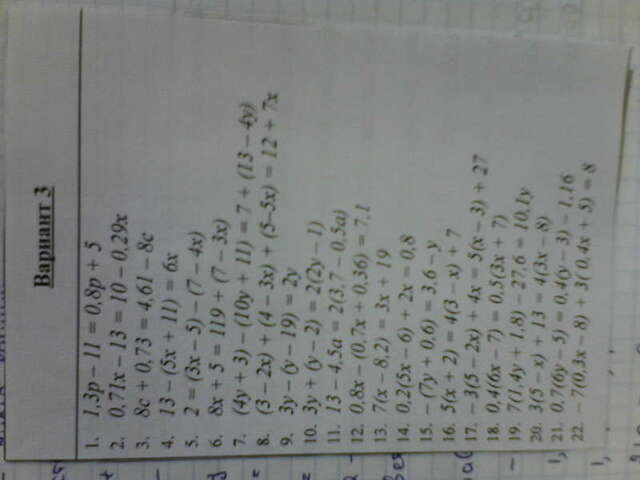 Вариант 3
1. 1,3p – 11 = 0,8p + 5
2. 0,71x – 13 = 10 – 0,29x
3. 8c + 0,73 = 4,61 – 8c
4. 13 – (5x + 11) = 6x
5. 2 = (3x – 5) – (7 – 4x)
6. 8x + 5 = 119 + (7 – 3x)
7. (4y + 3) – (10y + 11) = 7 + (13 – 4y)
8. (3 – 2x) + (4 – 3x) + (5–5x) = 12 + 7x
9. 3y – (y – 19) = 2y
10. 3y + (y – 2) = 2(2y – 1)
11. 13 – 4,5a = 2(3,7 – 0,5a)
12. 0,8x – (0,7x + 0,36) = 7,1
13. 7(x – 8,2) = 3x + 19
14. 0,2(5x – 6) + 2x = 0,8
15. – (7y + 0,6) = 3,6 – y
16. 5(x + 2) = 4(3 – x) + 7
17. – 3(5 – 2x) + 4x = 5(x – 3) + 27
18. 0,4(6x – 7) = 0,5(3x + 7)
19. 7(1,4y + 1,8) – 27,6 = 10,1y
20. 3(5 – x) + 13 = 4(3x – 8)
21. 0,7(6y – 5) = 0,4(y – 3) – 1,16
22. – 7(0,3x – 8) + 3( 0,4x + 5) = 8